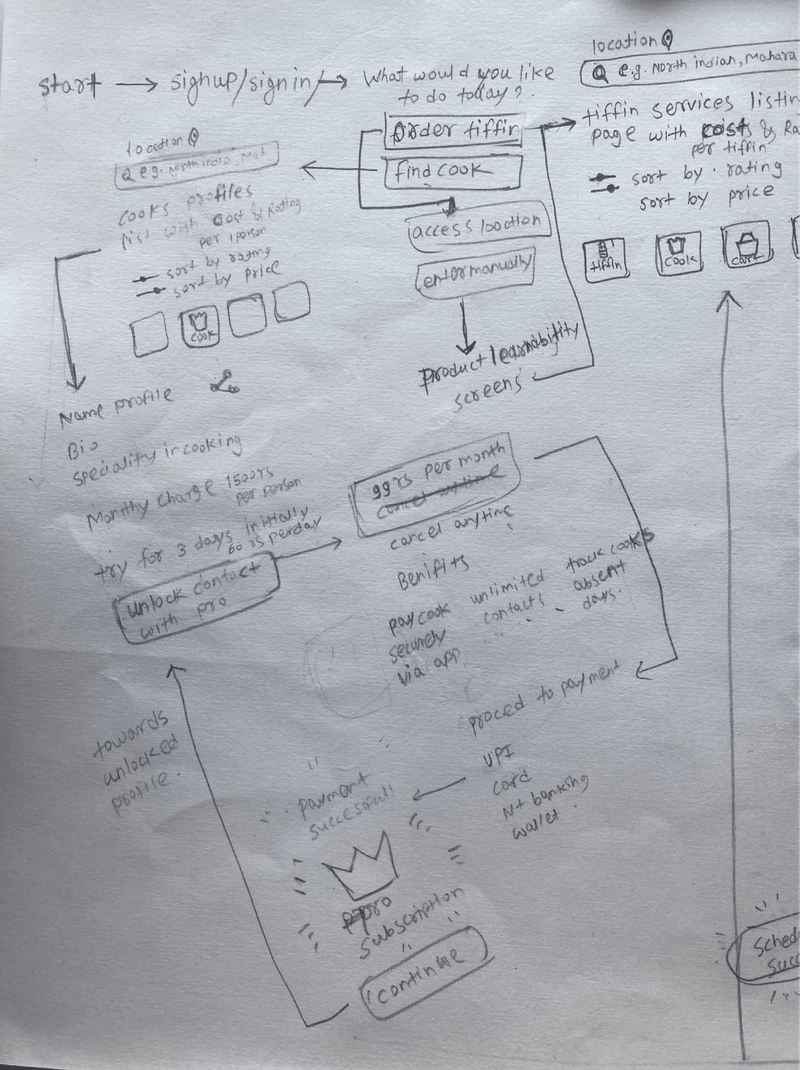 start → signup/signin/→ What would you like
to do today?
order tiffin
find cook
access location
enter manually
Product learnability
screens
location
e.g. North indian, Mahara
tiffin services listin
page with costs & Ra
per tiffin
sort by rating
sort by price
tiffin
Cook
cart
location
e.g. North india, Mah
cooks profiles
list with cost & Rating
per 1 person
sort by rating
sort by price
cook
Name profile
Bio
speciality in cooking
Monthy charge 1500rs
per person
try for 3 days initially
60 rs perday
unlock contact
with pro
99 rs per month
cancel anytime
cancel anytime
Benifits
pay cook
securely
via app
unlimited
contacts
track cooks
absent
days.
proced to payment
UPI
card
Nt banking
wallet.
payment
succesfull
pro
subscription
continue
towards
unlocked
profile.
Sched
succ